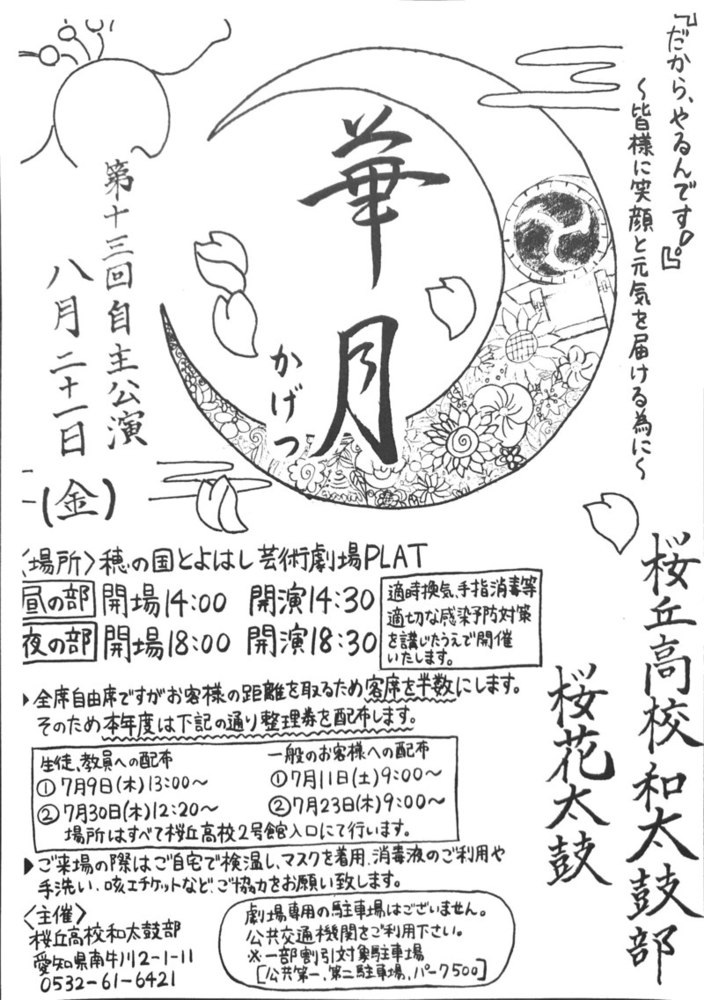 『だから、やるんです!。』
～皆様に笑顔と元気を届ける為に～
華月
かげつ
第十三回自主公演
八月二十一日
(金)
桜丘高校和太鼓部
桜花太鼓
〈場所〉穂の国とよはし芸術劇場PLAT
昼の部 開場14:00 開演14:30
夜の部 開場18:00 開演18:30
適時換気、手指消毒等
適切な感染予防対策
を講じたうえで開催
いたします。
▶全席自由席ですがお客様の距離を取るため客席を半数にします。
そのため本年度は下記の通り整理券を配布します。
生徒、教員への配布
①7月9日(木)13:00～
②7月30日(木)12:20～
一般のお客様への配布
①7月11日(土)9:00～
②7月23日(木)9:00～
場所はすべて桜丘高校2号館入口にて行います。
▶ご来場の際はご自宅で検温し、マスクを着用、消毒液のご利用や
手洗い、咳エチケットなど、ご協力をお願い致します。
〈主催〉
桜丘高校和太鼓部
愛知県南牛川2-1-11
0532-61-6421
劇場専用の駐車場はございません。
公共交通機関をご利用下さい。
※一部割引対象駐車場
[公共第一、第二駐車場、パーク500]